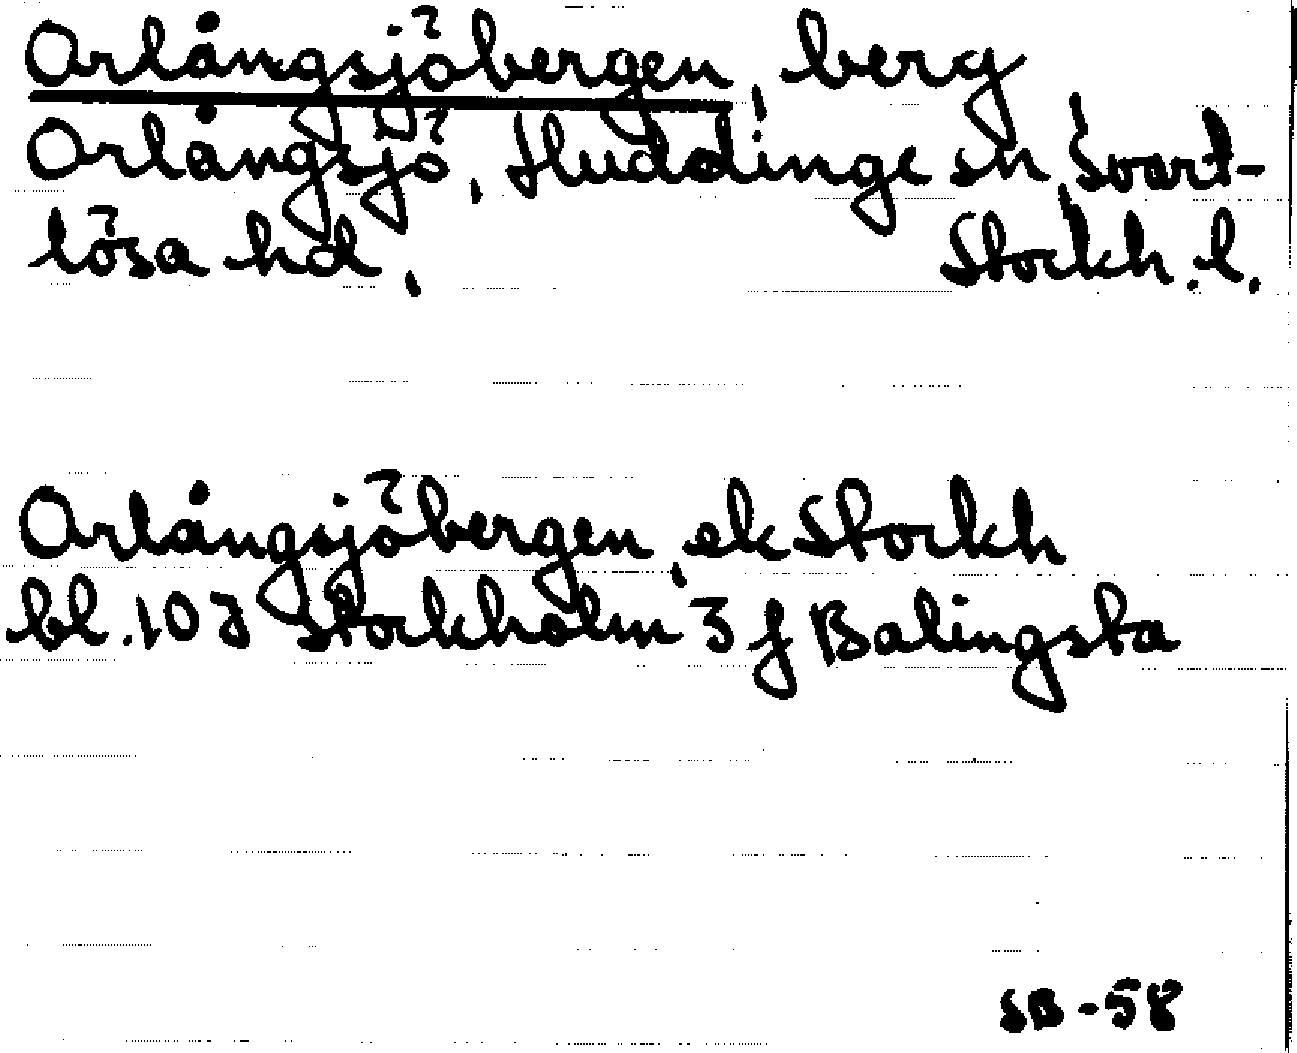 Orlångsjöbergen, berg
Orlångsjö, Huddinge sn, Svart-
lösa hd, Stockh. l.
Orlångsjöbergen, ek Stockh
bl. 103 Stockholm 3 f Balingsta
SB-58